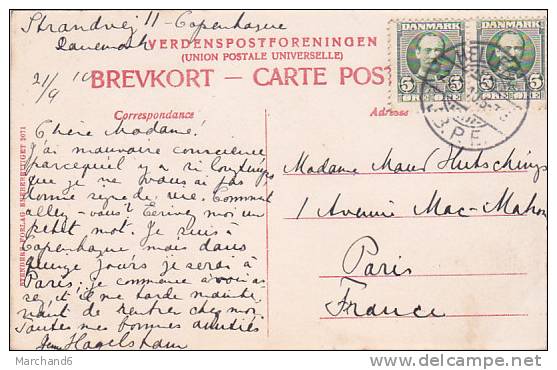 Strandvej 11 - Copenhague
Danemark
21/9 10
VERDENSPOSTFORENINGEN
(UNION POSTALE UNIVERSELLE)
BREVKORT - CARTE POST
Correspondance
Adresse
DANMARK
5 ØRE 5
DANMARK
5 ØRE
K.P.E.
Chère Madame!
J'ai mauvaise conscience
parceque il y a si longtemps
que je ne vous ai pas
donné signe de vie. Comment
allez-vous? Ecrivez moi un
petit mot. Je suis à
Copenhague mais dans
quinze jours je serai à
Paris; je commence à avoir as
sez et il me tarde mainte
nant de rentrer chez moi.
Toutes mes bonnes amitiés
Hagelstam
Madame Maud Hutchings
1 Avenue Mac-Mahon
Paris
France
STENDERS FORLAG ENEBERETTIGET 2071
Marchand6
http://www.delcampe.net